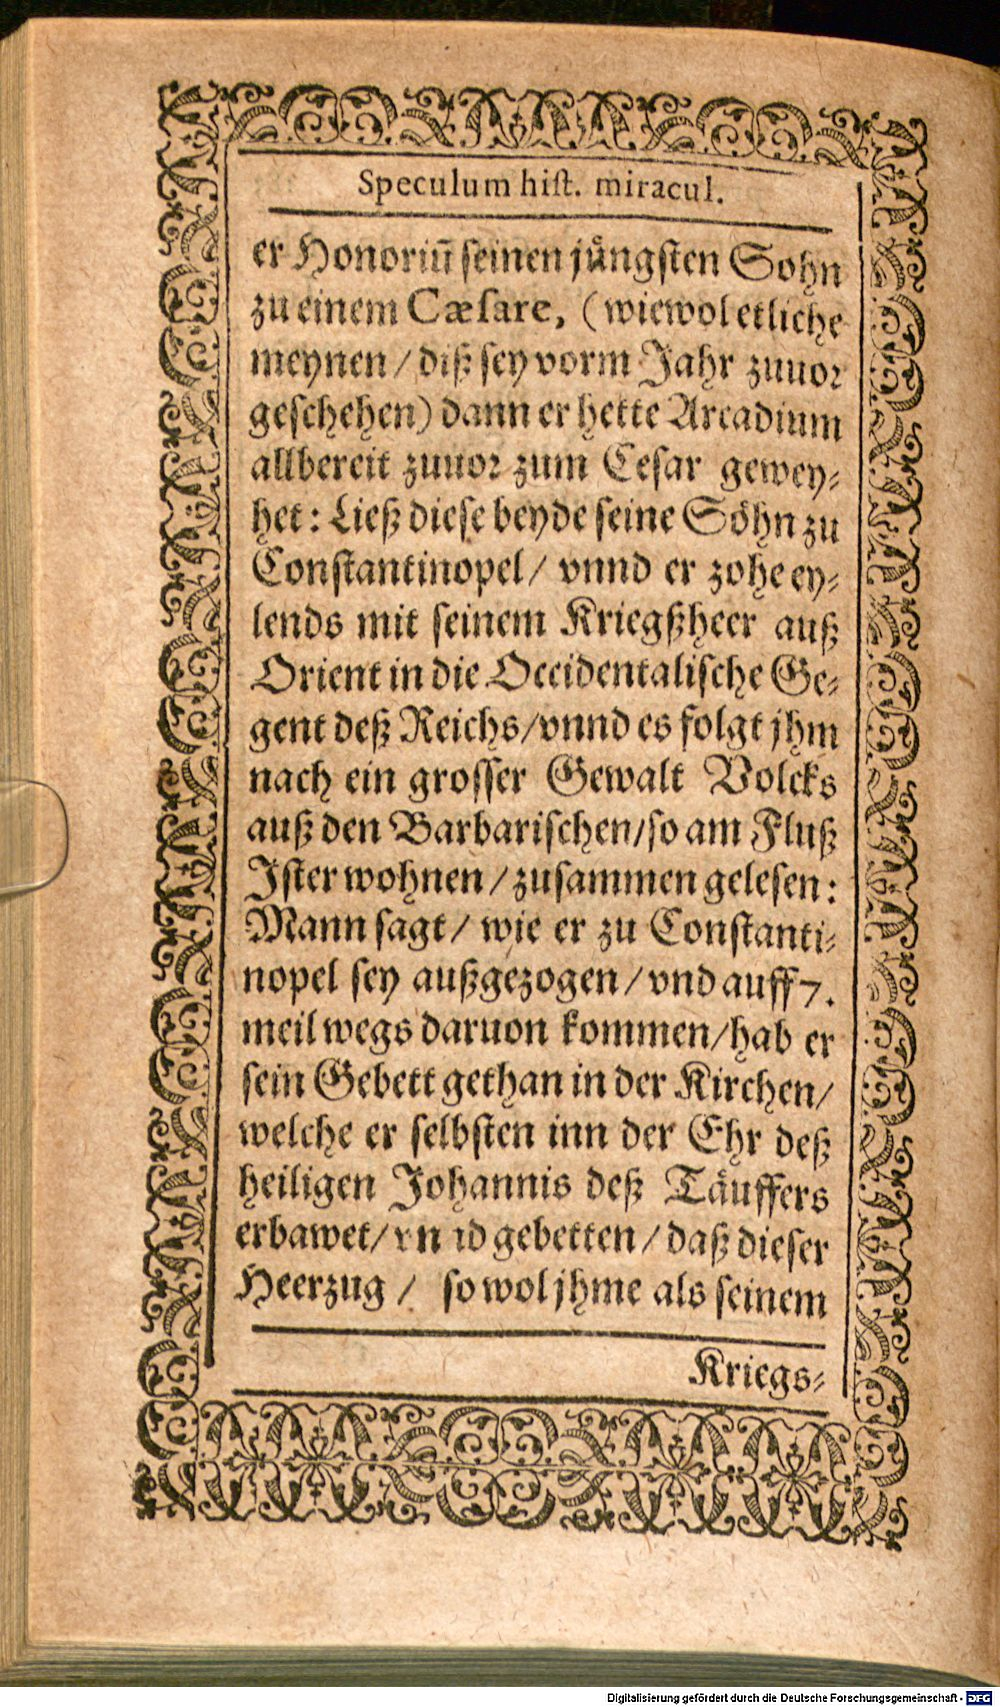 Speculum hiſt. miracul.
er Honoriū seinen jüngſten Sohn
zu einem Cæſare, (wiewol etliche
meynen / diß ſey vorm Jahr zuuor
geſchehen) dann er hette Arcadium
allbereit zuuor zum Ceſar gewey⸗
het: Ließ dieſe beyde ſeine Söhn zu
Conſtantinopel / vnnd er zohe ey⸗
lends mit ſeinem Kriegßheer auß
Orient in die Occidentaliſche Ge⸗
gent deß Reichs/vnnd es folgt jhm
nach ein groſſer Gewalt Volcks
auß den Barbariſchen/ſo am Fluß
Iſter wohnen / zuſammen geleſen:
Mann ſagt / wie er zu Conſtanti⸗
nopel ſey außgezogen / vnd auff 7.
meil wegs daruon kommen/hab er
ſein Gebett gethan in der Kirchen/
welche er ſelbſten inn der Ehr deß
heiligen Johannis deß Täuffers
erbawet/ vnnd gebetten / daß dieſer
Heerzug / ſo wol jhme als ſeinem
Kriegs⸗
Digitalisierung gefördert durch die Deutsche Forschungsgemeinschaft - DFG